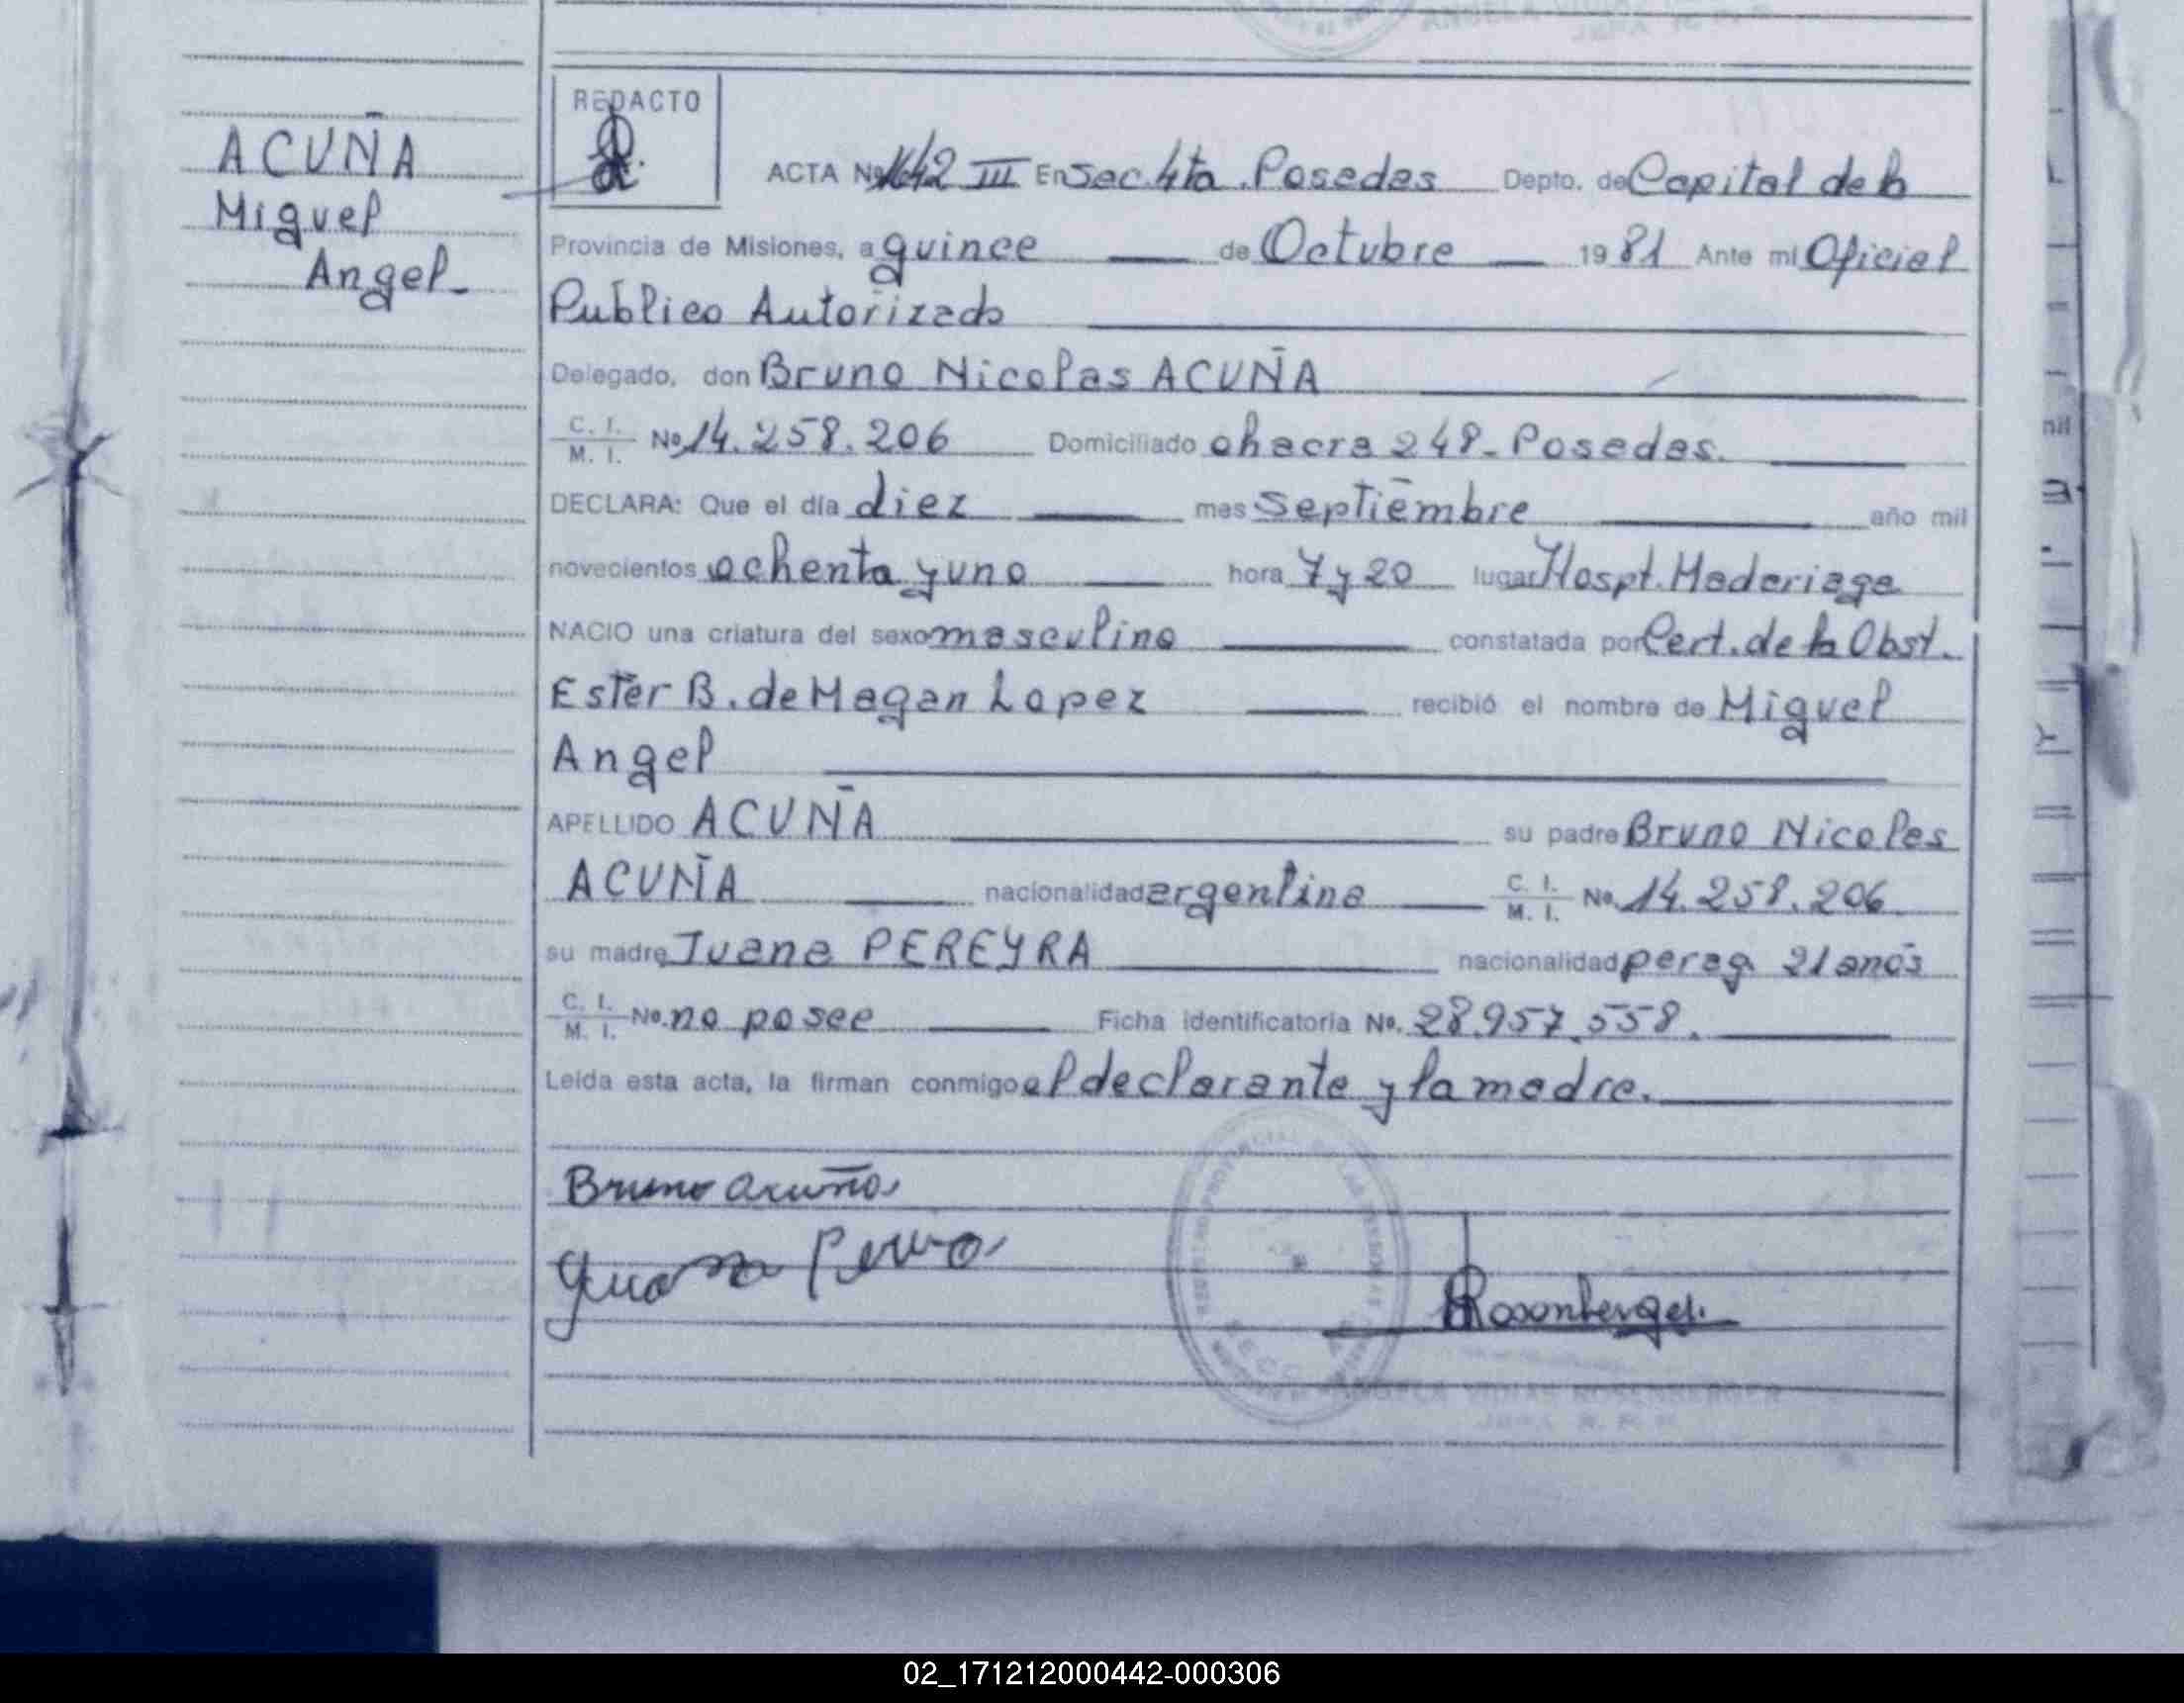 ACUÑA
Miguel
Angel-
REDACTO
ACTA Nº 1642 III En Sec. 4ta. Posadas Depto. de Capital de la
Provincia de Misiones, a quince de Octubre 1981 Ante mi Oficial
Publico Autorizado
Delegado, don Bruno Nicolas ACUÑA
C. I.
M. I. Nº 14.258.206 Domiciliado chacra 248- Posadas.
DECLARA: Que el día diez mes septiembre año mil
novecientos ochenta y uno hora 7 y 20 lugar Hospt. Madariaga
NACIO una criatura del sexo masculino constatada por Cert. de la Obst.
Ester B. de Magan Lopez recibió el nombre de Miguel
Angel
APELLIDO ACUÑA su padre Bruno Nicolas
ACUÑA nacionalidad argentina C. I.
M. I. No. 14.258.206
su madre Juana PEREYRA nacionalidad parag. 21 anos
C. I.
M. I. No. no posee Ficha identificatoria No. 28.957.558.
Leída esta acta, la firman conmigo el declarante y la madre.
Bruno acuña
Rosenberger
ROSENBERGER
02_171212000442-000306